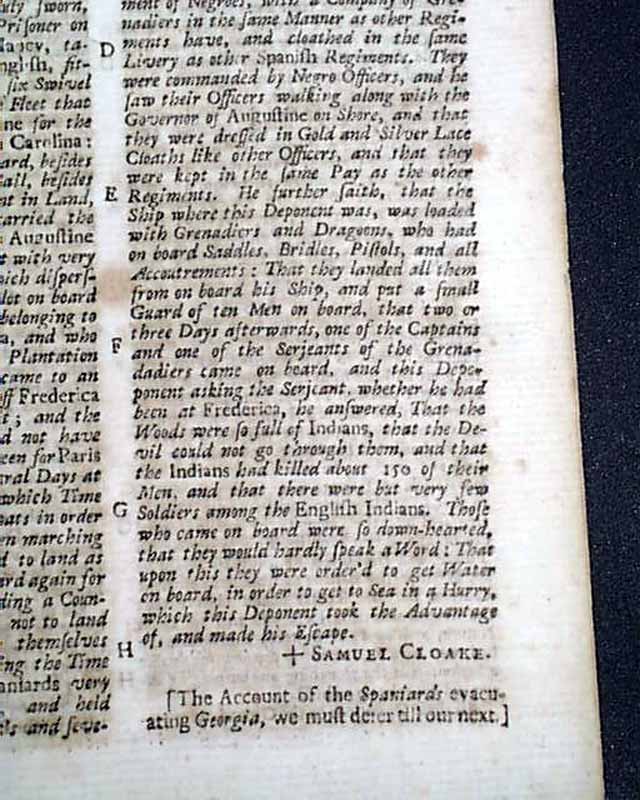 uly sworn,
Prisoner on
ta-
nglish, fit-
six Swivel
Fleet that
ne for the
Carolina:
ard, besides
ail, besides
nt in Land,
carried the
Augustine
t with very
hich dispers-
lot on board
belonging to
a, and who
Plantation
came to an
ff Frederica
t; and the
d not have
een for Paris
ral Days at
which Time
oats in order
en marching
d to land as
ard again for
ding a Coun-
not to land
themselves
ing the Time
aniards very
and held
ls and seve-
ment of Negroes, with a Company of Gre-
nadiers in the same Manner as other Regi-
D ments have, and cloathed in the same
Livery as other Spanish Regiments. They
were commanded by Negro Officers, and he
saw their Officers walking along with the
Governor of Augustine on Shore, and that
they were dressed in Gold and Silver Lace
Cloaths like other Officers, and that they
were kept in the same Pay as the other
E Regiments. He further saith, that the
Ship where this Deponent was, was loaded
with Grenadiers and Dragoens, who had
on board Saddles, Bridles, Pistols, and all
Accoutrements: That they landed all them
from on board his Ship, and put a small
Guard of ten Men on board, that two or
three Days afterwards, one of the Captains
F and one of the Serjeants of the Grena-
dadiers came on board, and this Depo-
ponent asking the Serjeant, whether he had
been at Frederica, he answered, That the
Woods were so full of Indians, that the De-
vil could not go through them, and that
the Indians had killed about 150 of their
Men, and that there were but very few
G Soldiers among the English Indians. Those
who came on board were so down-hearted,
that they would hardly speak a Word: That
upon this they were order'd to get Water
on board, in order to get to Sea in a Hurry,
which this Deponent took the Advantage
H of, and made his Escape.
+ SAMUEL CLOAKE.
[The Account of the Spaniards evacu-
ating Georgia, we must defer till our next.]